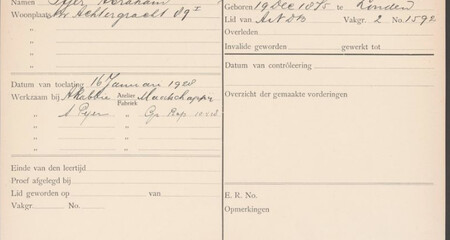 Namen Abraham
Woonplaats Nw Achtergracht 89 I
"
"
"
Datum van toelating 16 Januari 1928
Werkzaam bij Atelier Fabriek Maatschappij
" "
"
"
"
Einde van den leertijd
Proef afgelegd bij
Lid geworden op van
Vakgr. No.
Geboren 19 Dec 1875 te Londen
Lid van ANDB Vakgr. 2 No. 1592
Overleden
Invalide geworden gewerkt tot
Datum van contrôleering
Overzicht der gemaakte vorderingen
E. R. No.
Opmerkingen